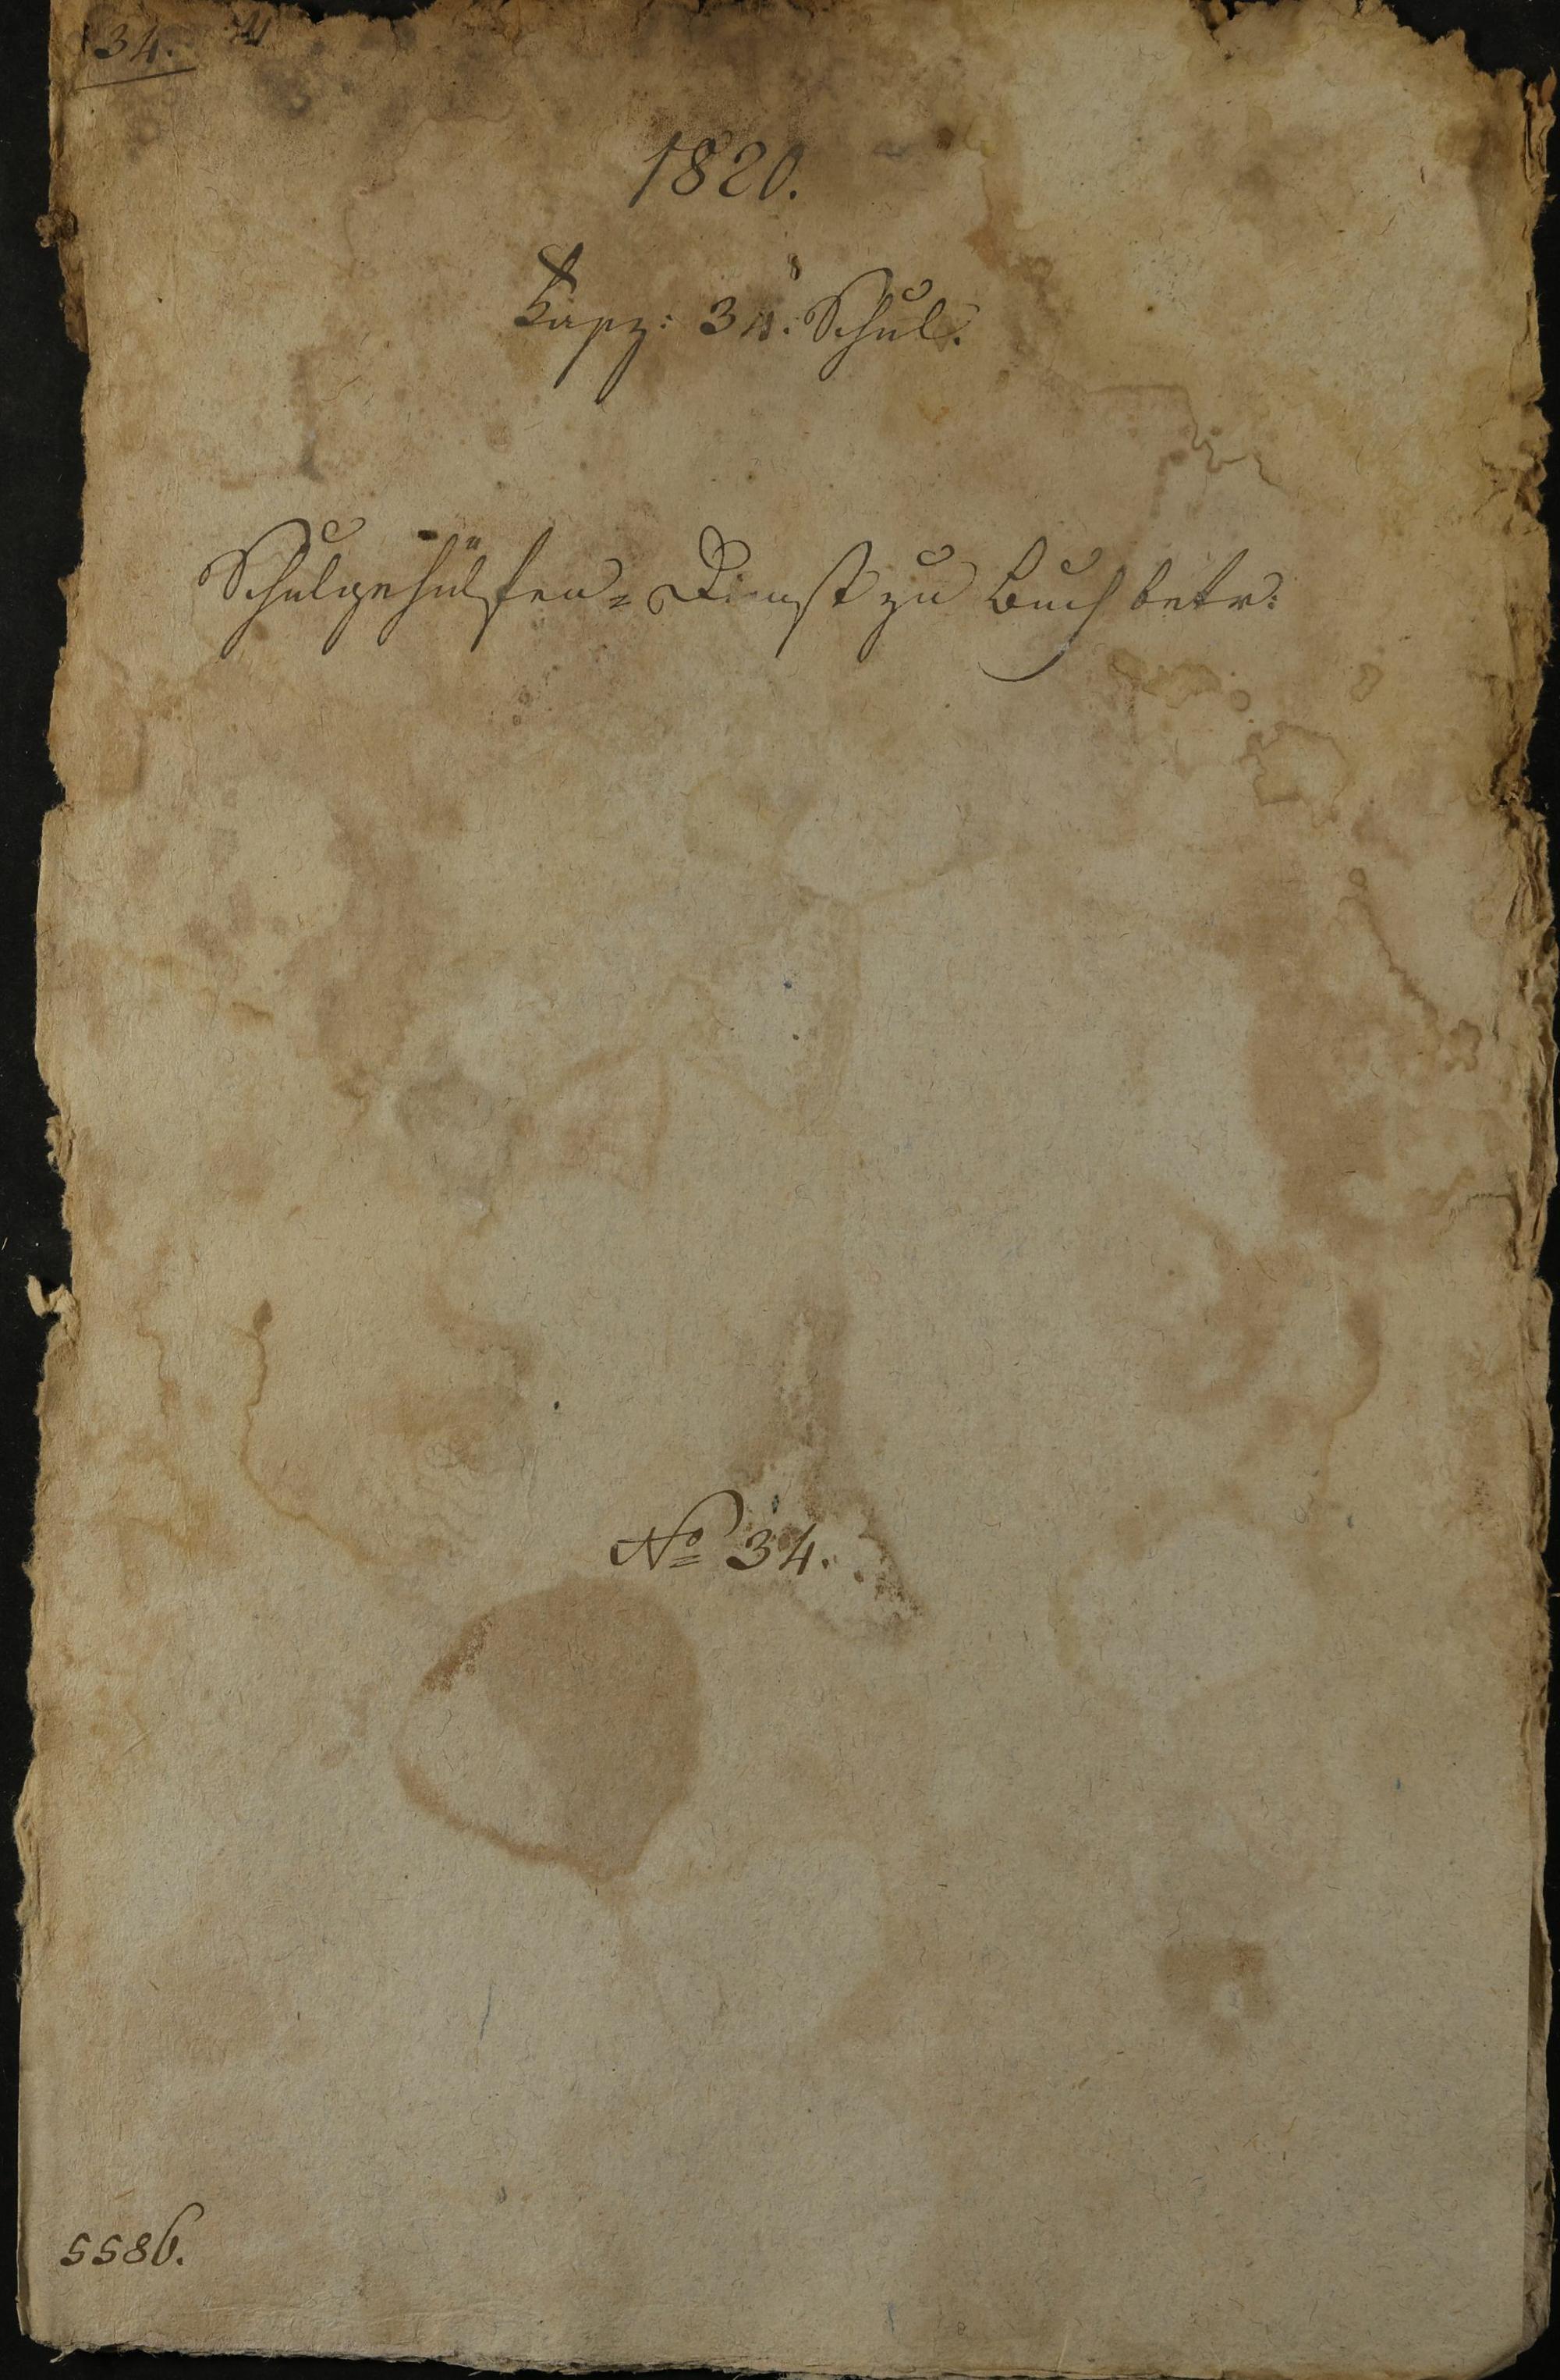 34.
1820.
Kapz: 34. Schul.
Schulgehülfen=Dienst zu Buch betr:
No 34.
5586.